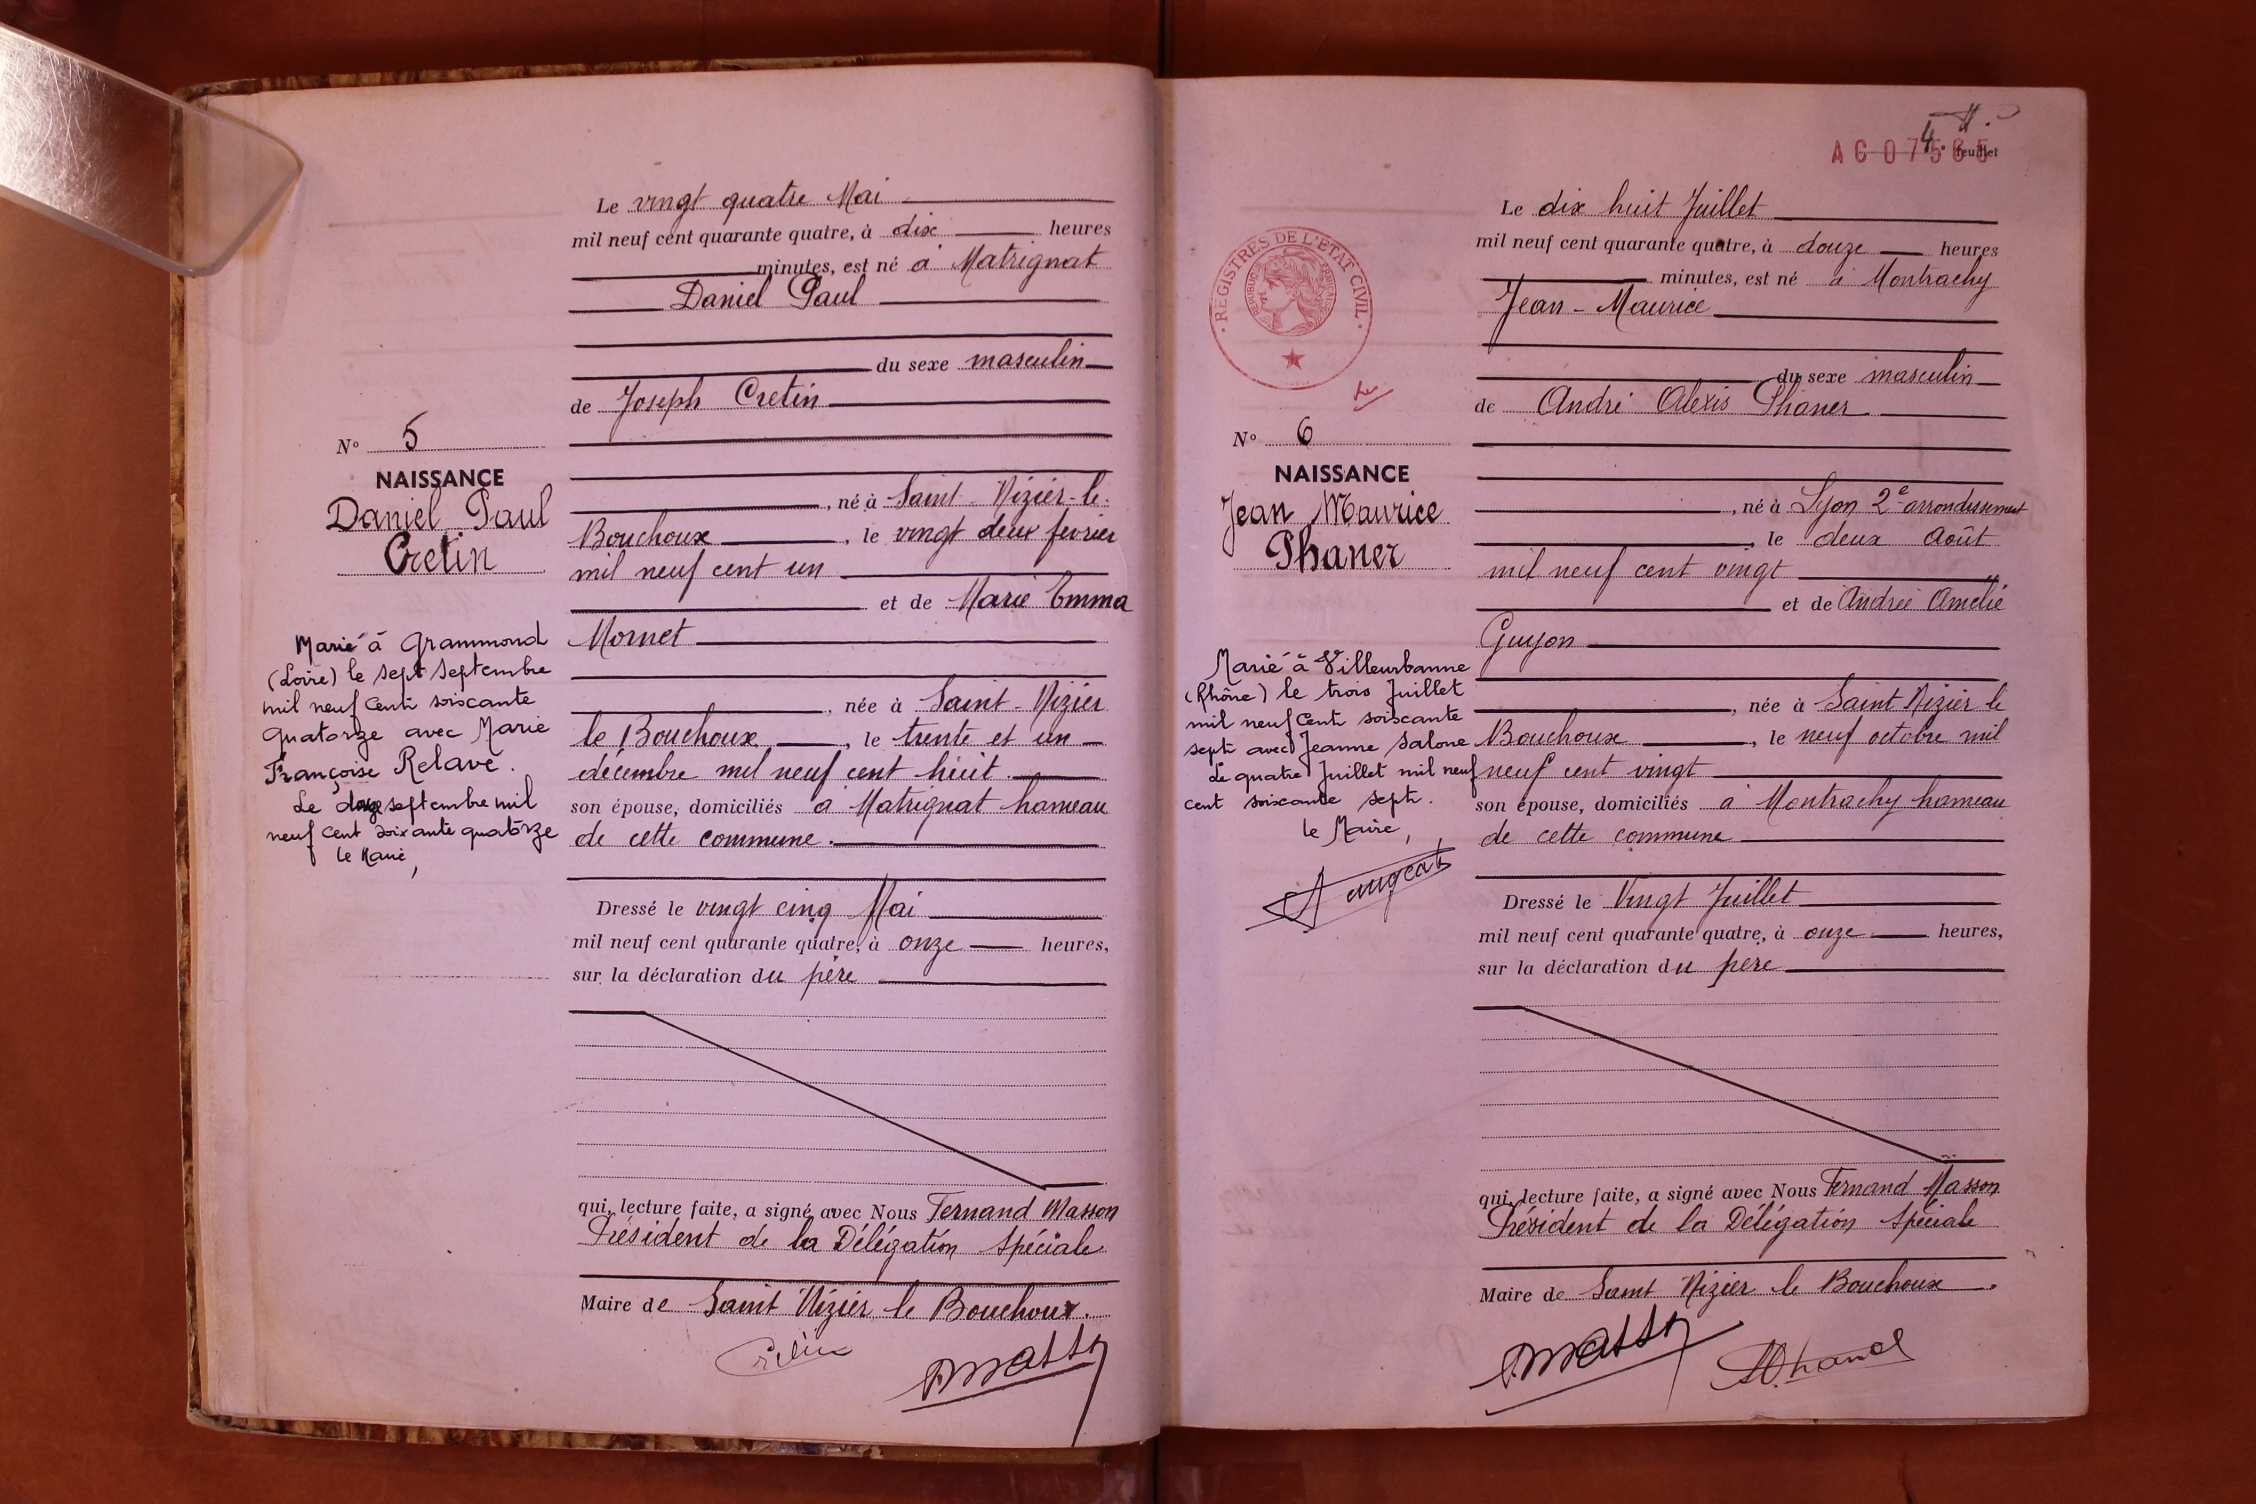 Le vingt quatre Mai
mil neuf cent quarante quatre, à dix heures
minutes, est né à Matrignat
Daniel Paul
du sexe masculin
de Joseph Cretin
N° 5
NAISSANCE
Daniel Paul
Cretin
, né à Saint-Nizier-le-
Bouchoux, le vingt deux fevrier
mil neuf cent un
et de Marie Emma
Mornet
, née à Saint-Nizier
le Bouchoux, le trente et un
décembre mil neuf cent huit
son épouse, domiciliés à Matrignat hameau
de cette commune.
Marié à Grammond
(Loire) le sept septembre
mil neuf cent soixante
quatorze avec Marie
Françoise Relave.
Le septembre mil
neuf cent soixante quatorze
le Maire,
Dressé le vingt cinq Mai
mil neuf cent quarante quatre, à onze heures,
sur la déclaration du père
qui, lecture faite, a signé avec Nous Fernand Masson
Président de la Délégation Spéciale
Maire de Saint Nizier le Bouchoux.
Cretin
Masson
4e feuillet
AC07585
Le dix huit Juillet
mil neuf cent quarante quatre, à douze heures
minutes, est né à Montrachy
Jean-Maurice
du sexe masculin
de André Alexis Phaner
REGISTRES DE L'ETAT CIVIL
N° 6
NAISSANCE
Jean Maurice
Phaner
, né à Lyon 2e arrondissement
, le deux Août
mil neuf cent vingt
et de Andrée Amélie
Guyon
, née à Saint Nizier le
Bouchoux, le neuf octobre mil
neuf cent vingt
son épouse, domiciliés à Montrachy hameau
de cette commune
Marié à Villeurbanne
(Rhône) le trois Juillet
mil neuf cent soixante
sept avec Jeanne Salone
Le quatre Juillet mil neuf
cent soixante sept.
le Maire,
Dressé le Vingt Juillet
mil neuf cent quarante quatre, à onze heures,
sur la déclaration du père
qui, lecture faite, a signé avec Nous Fernand Masson
Président de la Délégation Spéciale
Maire de Saint Nizier le Bouchoux.
Masson